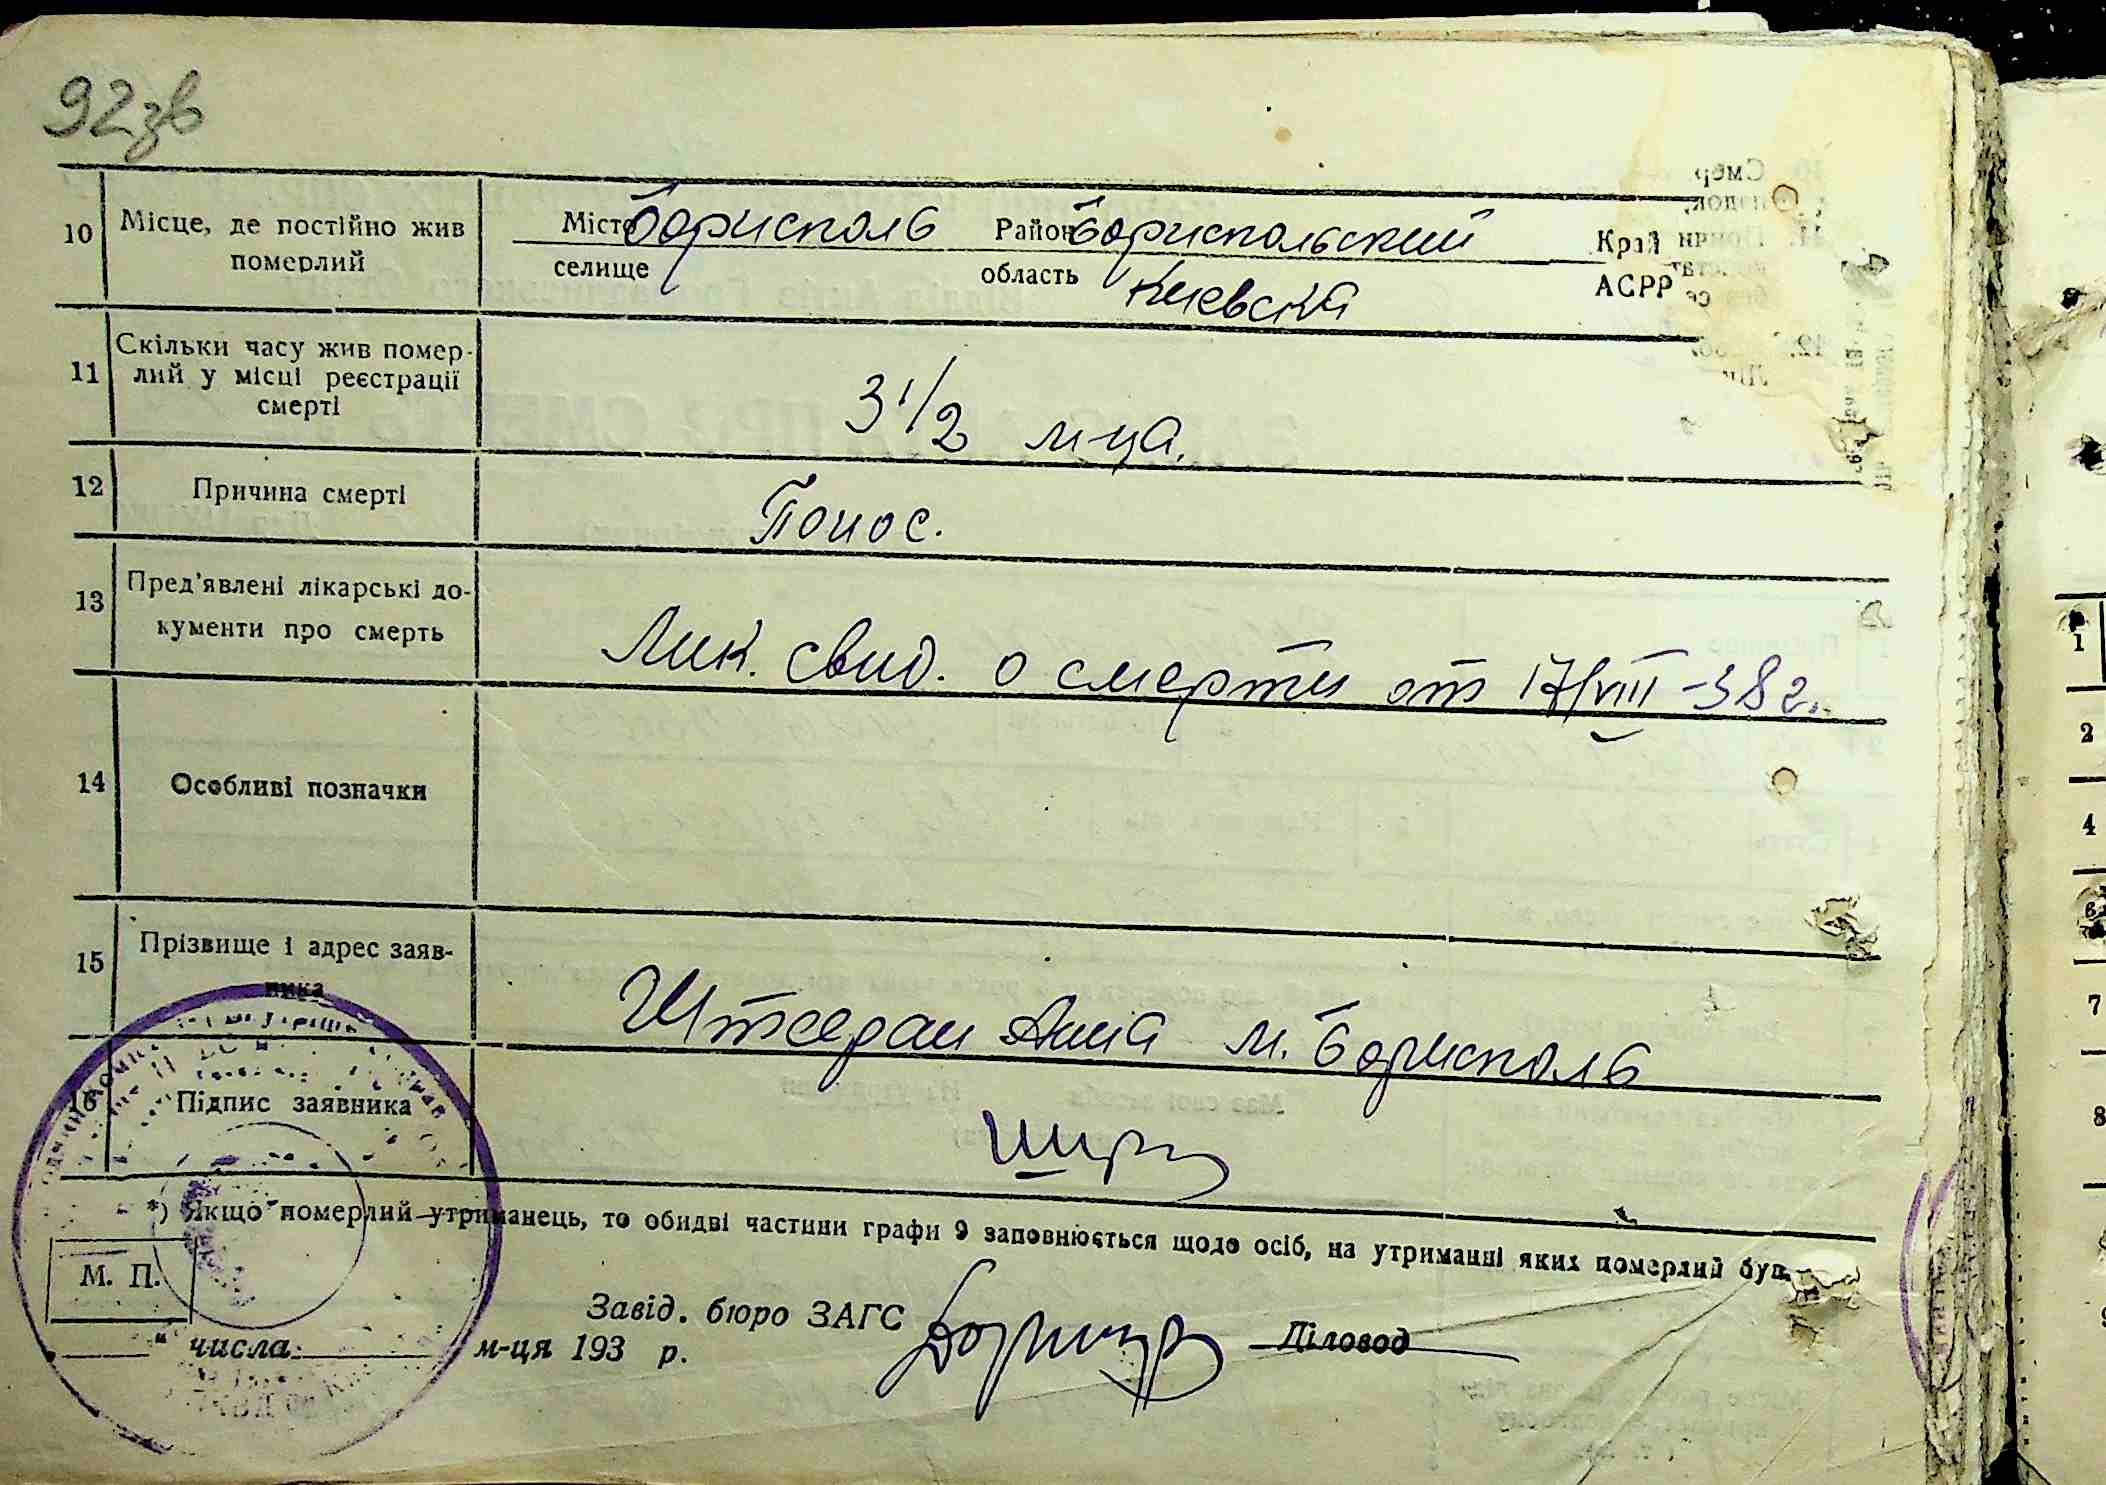 92зв
10 Місце, де постійно жив Місто Борисполь Район Бориспольский Край
померлий селище область Киевска АСРР
11 Скільки часу жив помер-
лий у місці реєстрації
смерті
3 1/2 м-ца.
12 Причина смерті Понос.
13 Пред'явлені лікарські до-
кументи про смерть
Лик. свид. о смерти от 17/VIII-38 г.
14 Особливі позначки
15 Прізвище і адрес заяв-
ника
Анна м. Борисполь
16 Підпис заявника
*) Якщо померлий утриманець, то обидві частини графи 9 заповнюється щодо осіб, на утриманні яких померлий був.
М. П.
Завід. бюро ЗАГС Діловод
" числа м-ця 193 р.
1
2
4
7
8